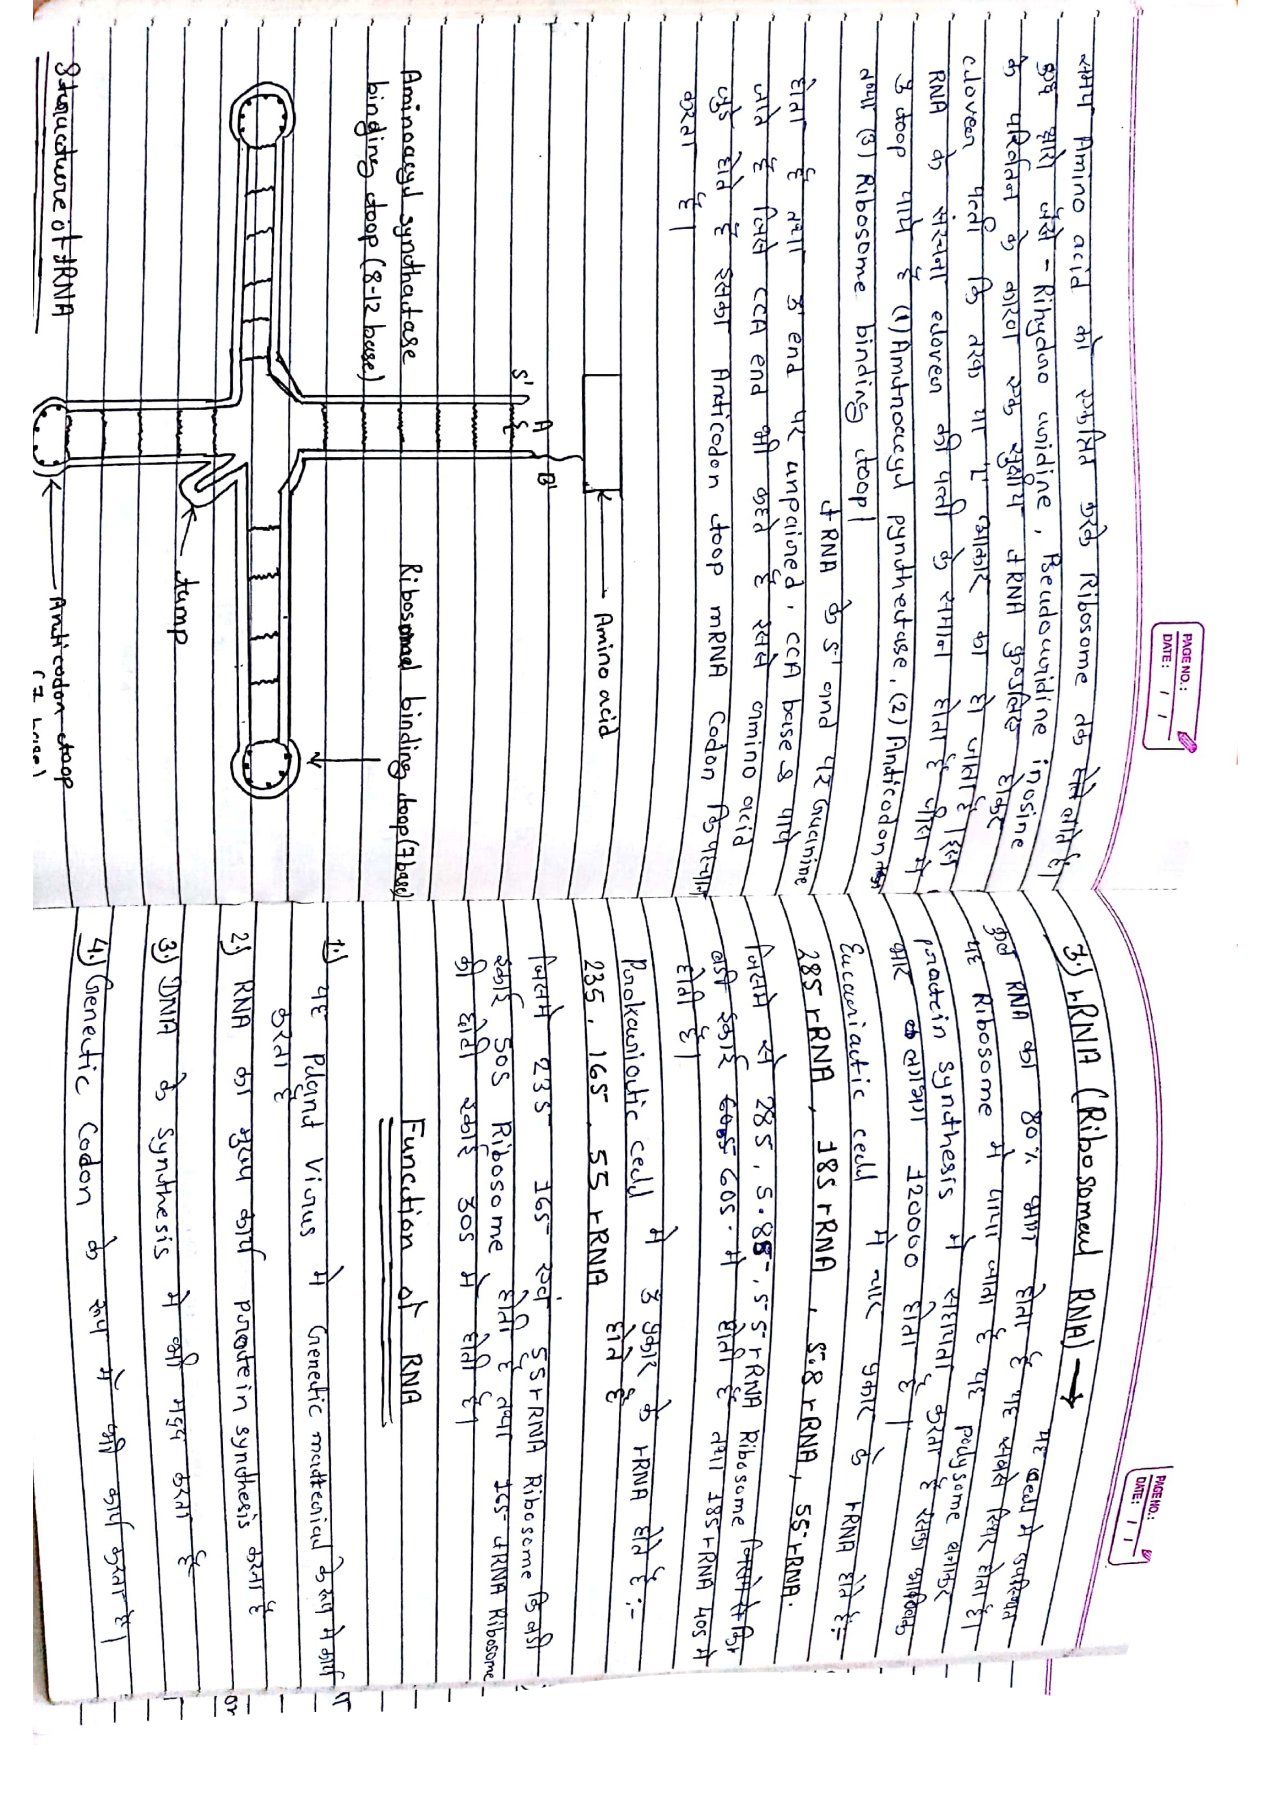 PAGE NO.:
DATE: / /
समय Amino acid को एकत्रित करके Ribosome तक लेते है।
कुछ क्षारो जैसे - Rihydro uridine, Pseudouridine inosine
के परिवर्तन के कारण एक सूत्रीय tRNA कुण्डलित होकर
cloveen पत्ती कि तरह या T आकार का हो जाता है। इस
RNA के संरचना cloveen की पत्ती के समान होता है जीस मे
3 loop पाये है (1) Amtnocuyl pynthetase, (2) Anticodon loop
तथा (3) Ribosome binding loop।
tRNA के 5' and पर Gucinine
होता है तथा 3' end पर unpaired, CCA base-s पाये
जाते है जिसे CCA end भी कहते है इससे amino acid
जुड़े होते है इसका Anticodon loop mRNA Codon कि पहचान
करता है।
Amino acid
5'
A
C
B'
Aminoacyl synthatase
binding loop (8-12 base)
Ribosomal binding loop (7 base)
lump
Anticodon loop
(7 base)
Structure of tRNA
PAGE NO.:
DATE: / /
3.) rRNA (Ribosomal RNA) →
यह cell मे उपस्थित
कुल RNA का 80% भाग होता है यह सबसे स्थिर होता है।
यह Ribosome मे पाया जाता है यह polysome बनाकर
protein synthesis मे सहायता करता है इसका आणविक
भार लगभग 120000 होता है।
Eucariactic cell मे चार प्रकार के rRNA होते है:-
28S rRNA, 18S rRNA, 5.8 rRNA, 5S rRNA.
जिसमे से 28S, 5.8S, 5S rRNA Ribosome
बड़ी इकाई 60S मे होती है तथा 18S rRNA 40S मे
होती है।
Prokariotic cell मे 3 प्रकार के rRNA होते है:-
23S, 16S, 5S rRNA होते है
जिसमे 23S 16S एवं 5S rRNA Ribosome कि बड़ी
इकाई 50S Ribosome होती है तथा 16S tRNA Ribosome
की छोटी इकाई 30S मे होती है।
Function of RNA
1.) यह Pland Virus मे Genetic matterial के रूप मे कार्य
करता है
2.) RNA का मुख्य कार्य protein synthesis करना है
3.) DNA के Synthesis मे भी मदद करता है
4.) Genetic Codon के रूप मे भी कार्य करता है।